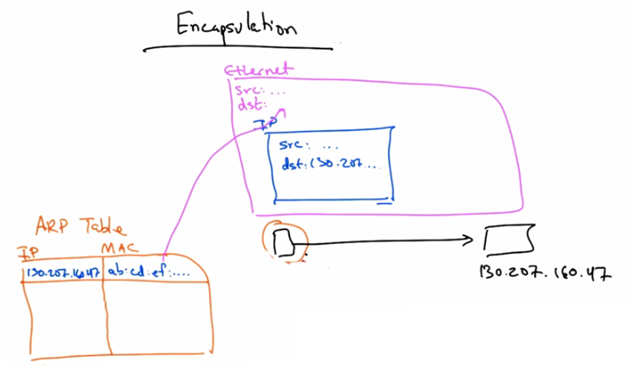 Encapsulation
Ethernet
src: ...
dst:
IP
src: ...
dst: 130.207...
ARP Table
IP MAC
130.207.160.47 ab:cd:ef:....
130.207.160.47